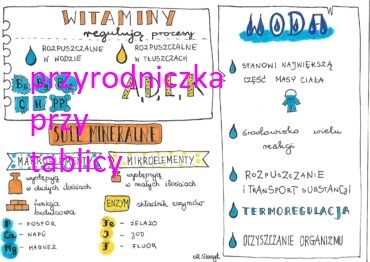 WITAMINY
regulują procesy
ROZPUSZCZALNE
W WODZIE
ROZPUSZCZALNE
W TŁUSZCZACH
A, D, E, K
C H PP
przyrodniczka
przy
tablicy
SOLE MINERALNE
MAKROELEMENTY
MIKROELEMENTY
występują
w dużych ilościach
występują
w małych ilościach
funkcja
budulcowa
ENZYM składnik enzymów
P - FOSFOR
Ca - WAPŃ
Mg - MAGNEZ
Fe - ŻELAZO
I - JOD
F - FLUOR
WODA
STANOWI NAJWIĘKSZĄ
CZĘŚĆ MASY CIAŁA
środowisko wielu
reakcji
ROZPUSZCZANIE
I TRANSPORT SUBSTANCJI
TERMOREGULACJA
OCZYSZCZANIE ORGANIZMU